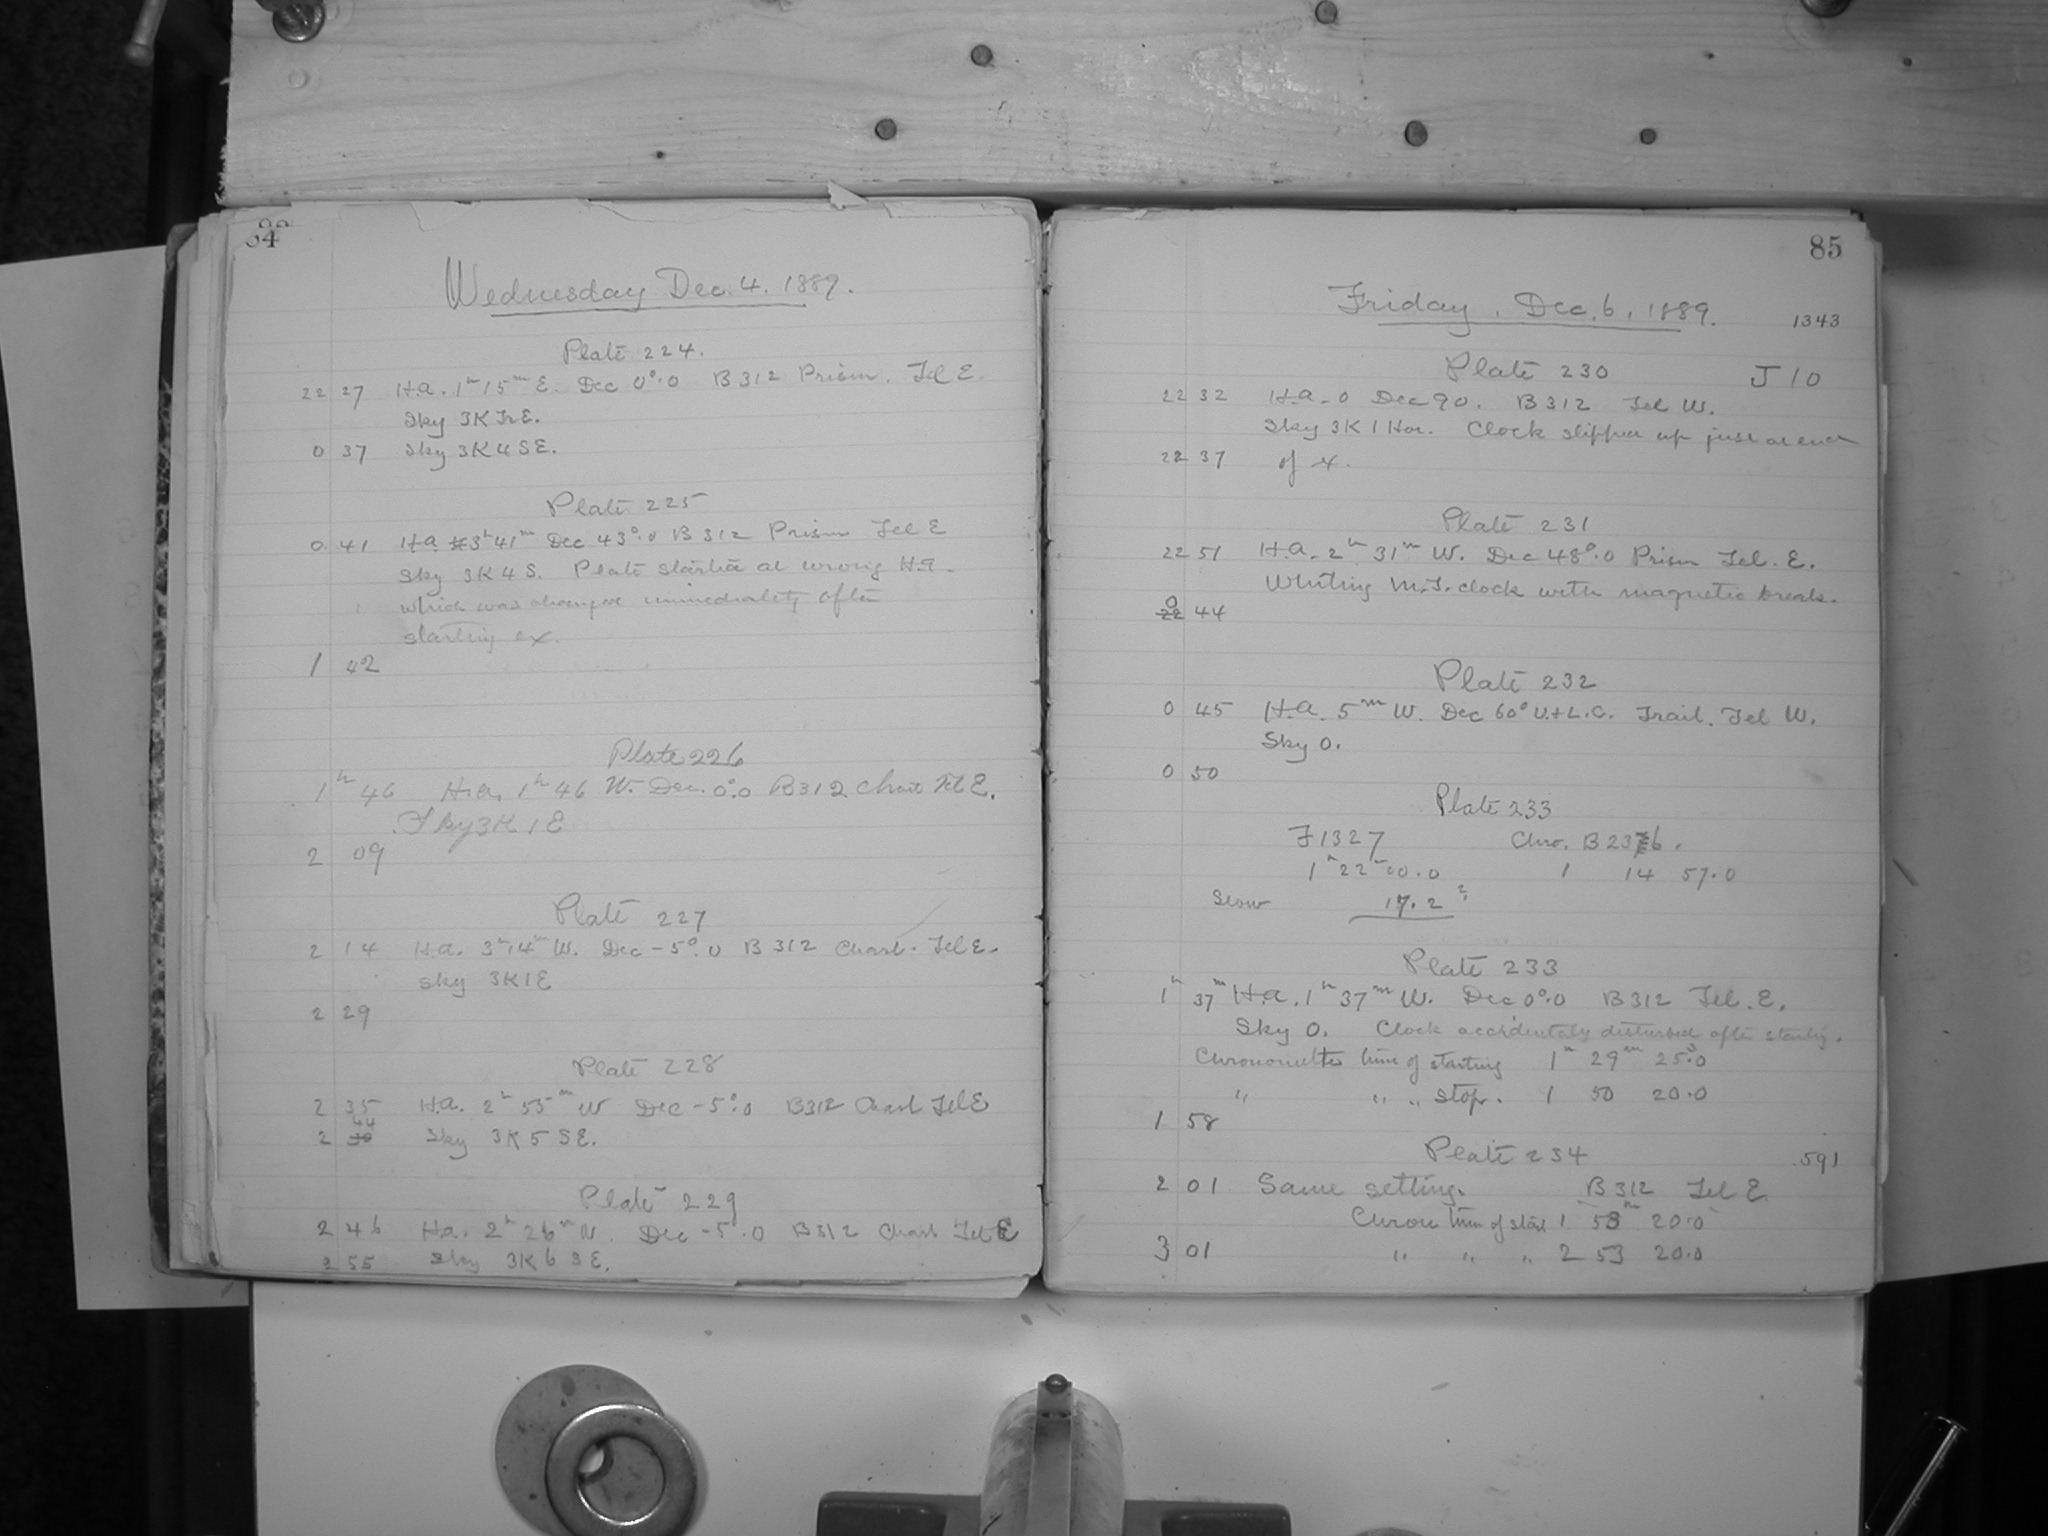 84
Wednesday Dec. 4. 1889.
Plate 224.
22 27 H.a. 1h 15m E. Dec 0°.0 B 312 Prism. Tel E.
Sky 3K Tr E.
0 37 Sky 3K 4 SE.
Plate 225
0 41 H.a. 3h 41m Dec 43°.0 B 312 Prism Tel E
Sky 3K 4 S. Plate started at wrong H.a.
which was changed immediately after
starting ex.
1 42
Plate 226
1h 46 H.a. 1h 46 W. Dec. 0°.0 B312 Chart Tel E.
Sky 3K 1 E
2 09
Plate 227
2 14 H.a. 3h 14m W. Dec -5°.0 B 312 Chart. Tel E.
Sky 3K 1 E
2 29
Plate 228
2 35 H.a. 2h 55m W Dec -5°.0 B312 Chart Tel E
2 44 Sky 3K 5 SE.
Plate 229
2 46 H.a. 2h 26m W. Dec -5°.0 B312 Chart Tel E
2 55 Sky 3K 6 SE.
85
Friday, Dec. 6, 1889. 1343
Plate 230 J 10
22 32 H.a. 0 Dec 90. B 312 Tel W.
Sky 3K 1 Hor. Clock slipped up just at end
22 37 of x.
Plate 231
22 51 H.a. 2h 31m W. Dec 48°.0 Prism Tel. E.
Whiting M.T. clock with magnetic break.
0
22 44
Plate 232
0 45 H.a. 5m W. Dec 60° U.+L.C. Trail. Tel W.
Sky 0.
0 50
Plate 233
F 1327 Chro. B 2376.
1h 22m 00.0 1 14 57.0
Slow 17.2 ?
Plate 233
1h 37m H.a. 1h 37m W. Dec 0°.0 B 312 Tel. E.
Sky 0. Clock accidentaly disturbed after starting.
Chronometer time of starting 1h 29m 25s.0
" " " Stop. 1 50 20.0
1 58
Plate 234 591
2 01 Same setting. B 312 Tel E
Chron time of start 1 53m 20.0
3 01 " " " 2 53 20.0